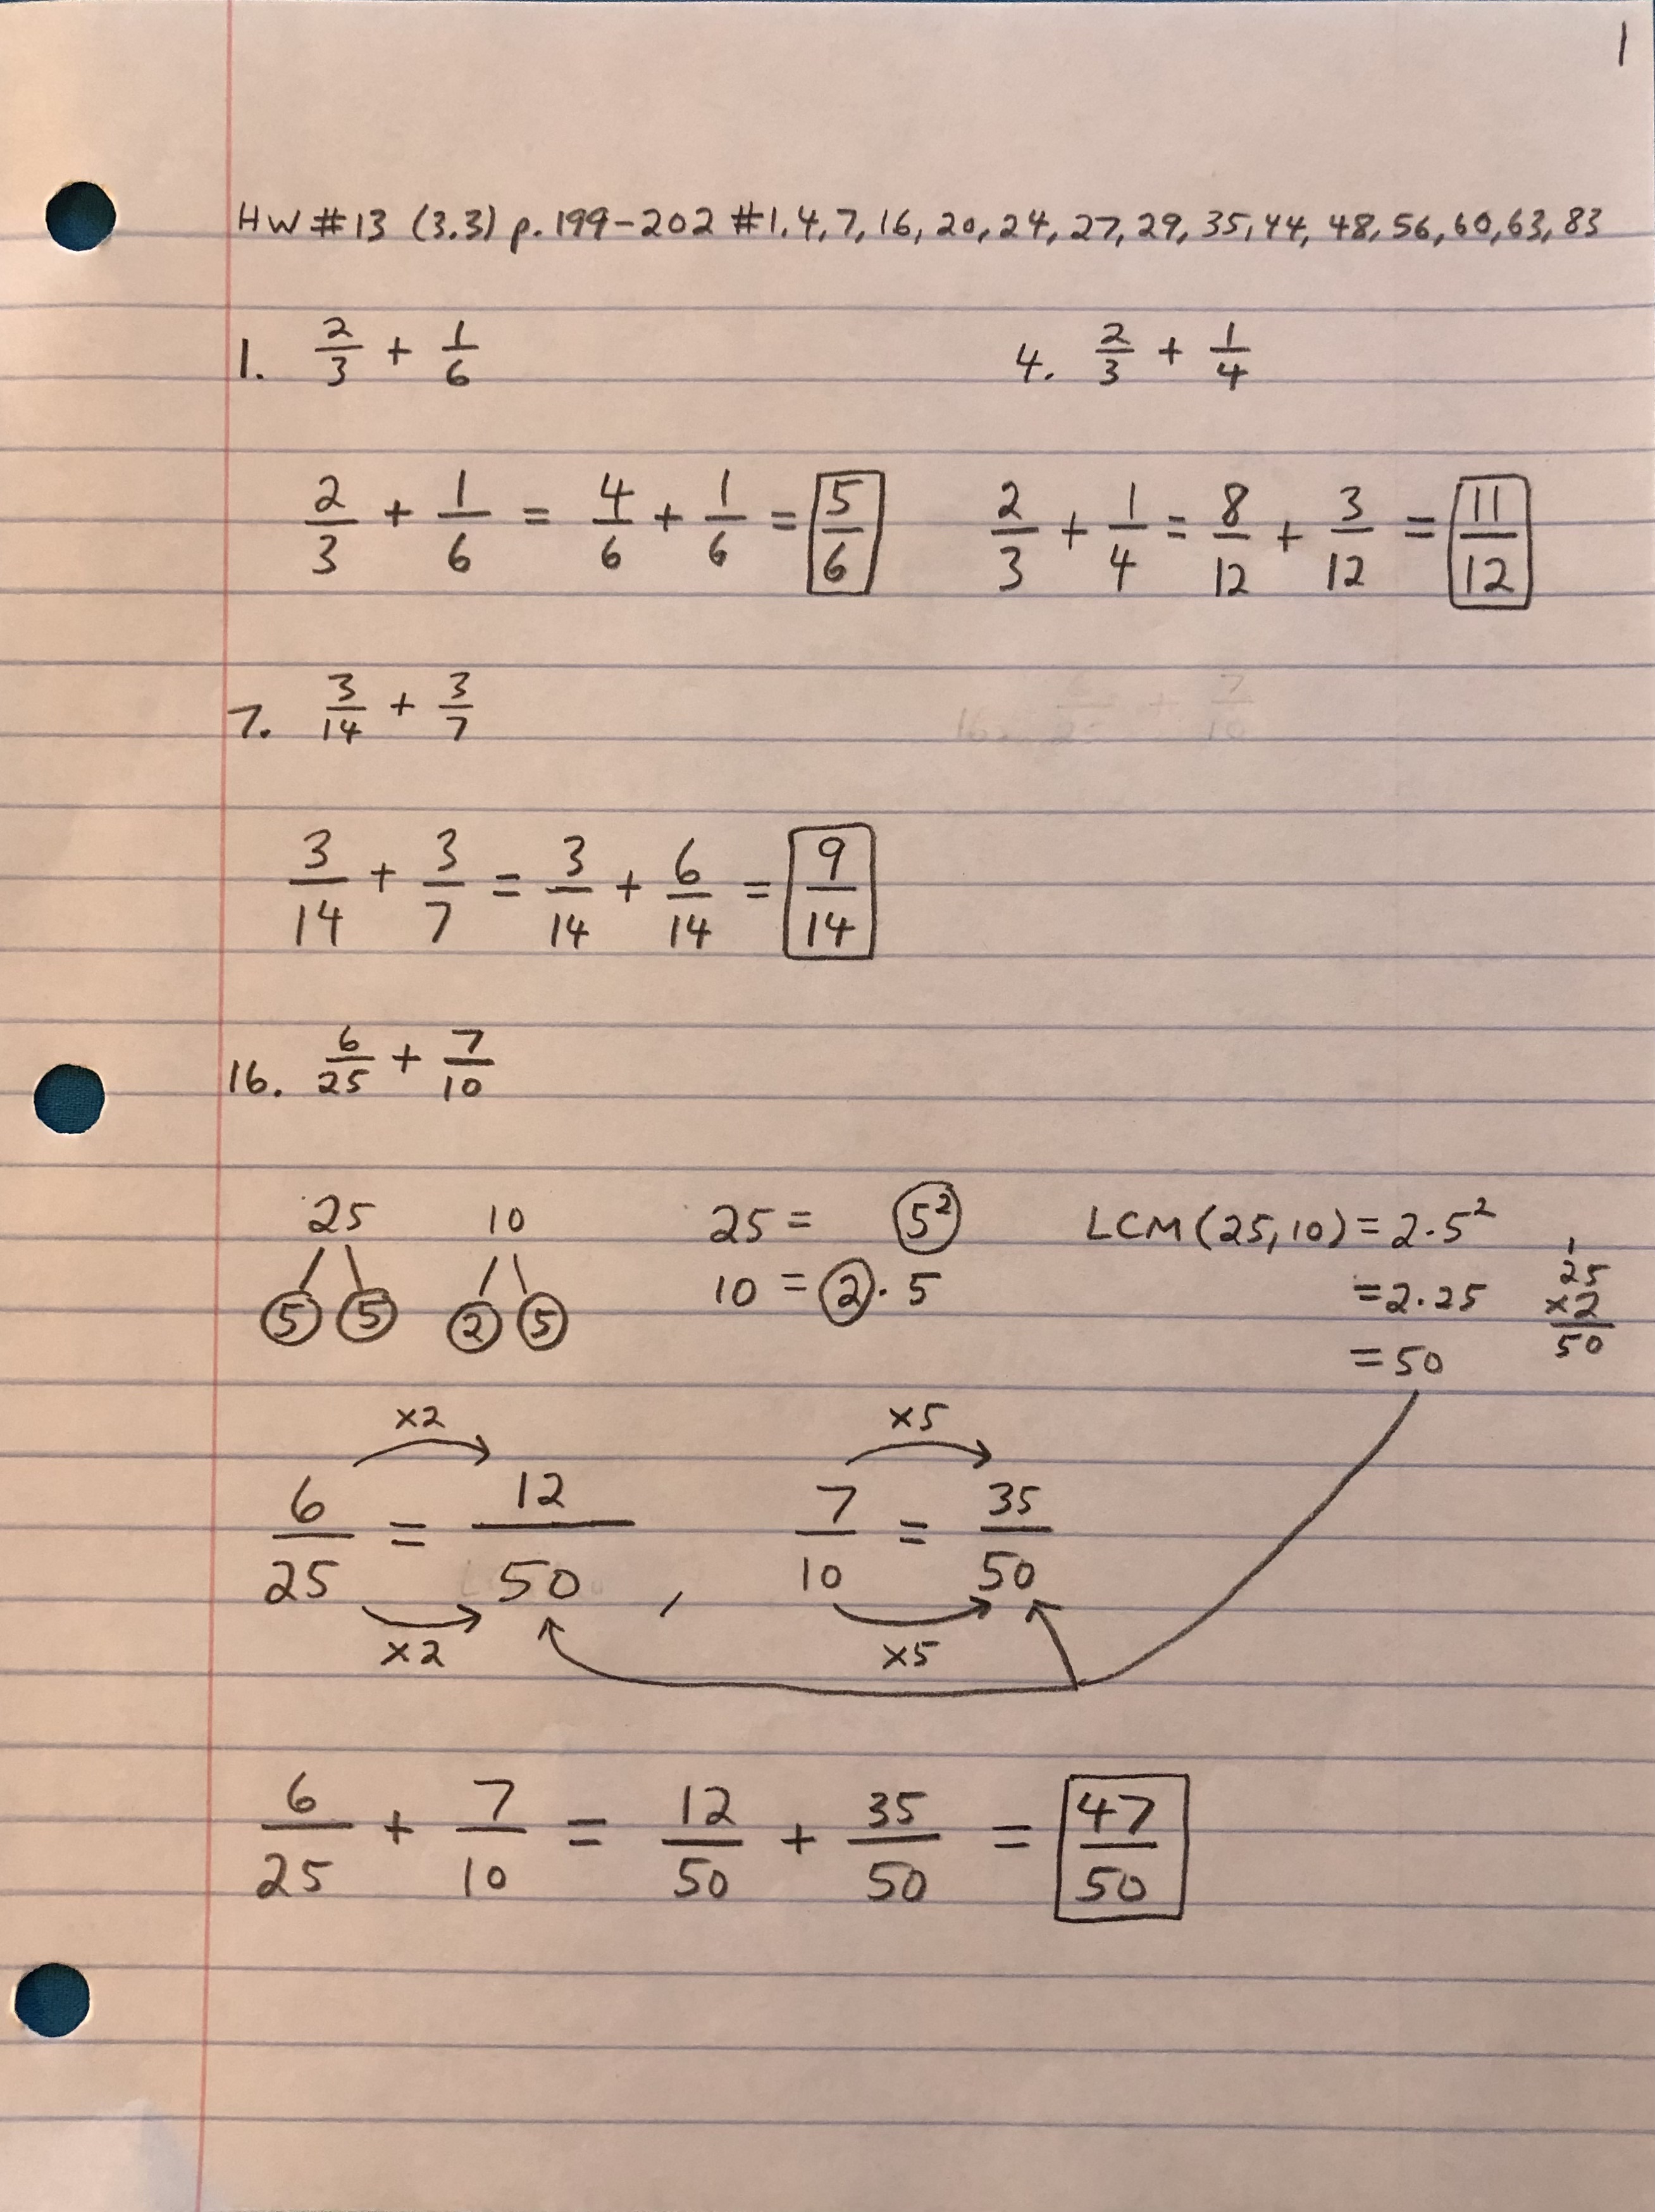 1
HW #13 (3.3) p. 199-202 #1, 4, 7, 16, 20, 24, 27, 29, 35, 44, 48, 56, 60, 63, 83
1. 2/3 + 1/6
4. 2/3 + 1/4
2/3 + 1/6 = 4/6 + 1/6 = 5/6
2/3 + 1/4 = 8/12 + 3/12 = 11/12
7. 3/14 + 3/7
3/14 + 3/7 = 3/14 + 6/14 = 9/14
16. 6/25 + 7/10
25
5 5
10
2 5
25 = 5²
10 = 2 · 5
LCM(25,10) = 2·5²
= 2·25
= 50
1
25
×2
50
×2
6/25 = 12/50 ,
×2
×5
7/10 = 35/50
×5
6/25 + 7/10 = 12/50 + 35/50 = 47/50